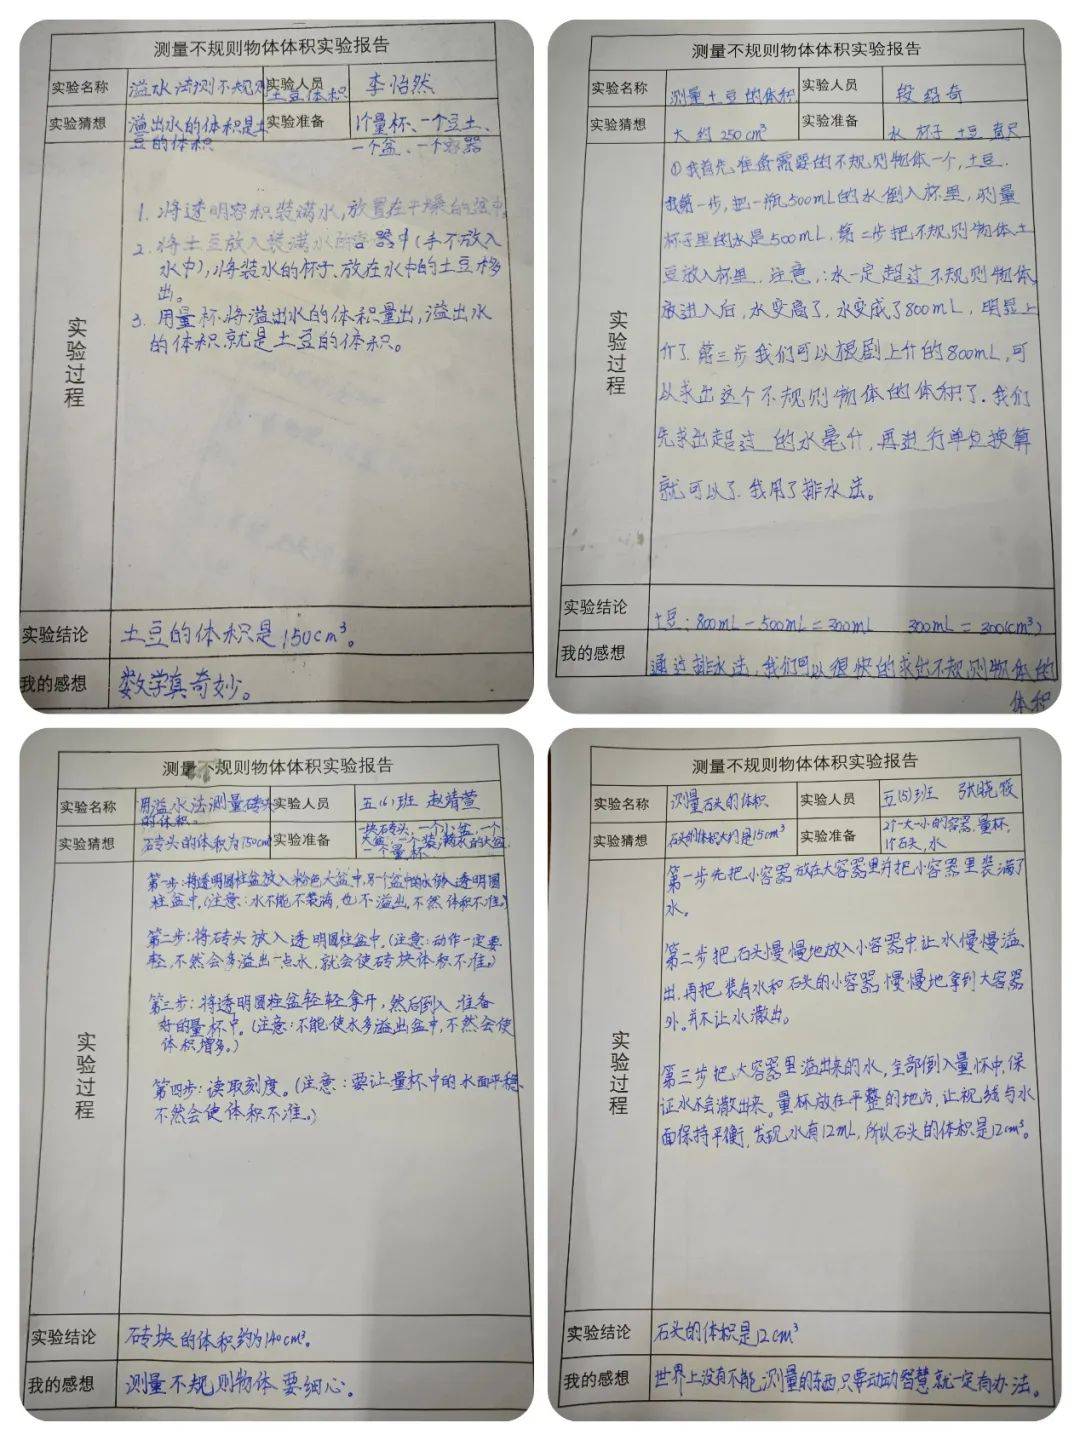 测量不规则物体体积实验报告
实验名称 溢水法测不规则土豆体积 实验人员 李怡然
实验猜想 溢出水的体积是土豆的体积 实验准备 1个量杯、一个豆土、一个盆、一个容器
实验过程
1. 将透明容积装满水,放置在干燥的盆中。
2. 将土豆放入装满水的容器中(手不放入
水中),将装水的杯子、放在水中的土豆移
出。
3. 用量杯将溢出水的体积量出,溢出水
的体积就是土豆的体积。
实验结论 土豆的体积是150cm³。
我的感想 数学真奇妙。
测量不规则物体体积实验报告
实验名称 测量土豆的体积 实验人员 段绍奇
实验猜想 大约250cm³ 实验准备 水 杯子 土豆 直尺
实验过程
①我首先准备需要的不规则物体一个,土豆.
我第一步,把一瓶500mL的水倒入杯里,测量
杯子里的水是500mL,第二步把不规则物体土
豆放入杯里,注意,:水一定超过不规则物体,
放进入后,水变高了,水变成了800mL,明显上
升了.第三步我们可以根剧上升的800mL,可
以求出这个不规则物体的体积了.我们
先求出超过的水毫升,再进行单位换算
就可以了.我用了排水法。
实验结论 土豆:800mL-500mL=300mL 300mL=300(cm³)
我的感想 通过排水法,我们可以很快的求出不规则物体的
体积
测量不规则物体体积实验报告
实验名称 用溢水法测量砖块的体积。 实验人员 五(6)班 赵靖萱
实验猜想 石砖头的体积为150cm³ 实验准备 一块石砖头,一个小盆,一个大盆,一个装满水的大盆,一个量杯
实验过程
第一步:将透明圆柱盆放入粉色大盆中,另个盆中的水倒入透明圆
柱盆中,(注意:水不能不装满,也不溢出,不然体积不准。)
第二步:将砖头放入透明圆柱盆中.(注意:动作一定要
轻,不然会多溢出一点水,就会使砖块体积不准。)
第三步:将透明圆柱盆轻轻拿开,然后倒入准备
好的量杯中。(注意:不能使水多溢出盆中,不然会使
体积增多。)
第四步:读取刻度。(注意:要让量杯中的水面平稳、
不然会使体积不准。)
实验结论 砖块的体积约为140cm³。
我的感想 测量不规则物体要细心。
测量不规则物体体积实验报告
实验名称 测量石头的体积 实验人员 五(5)班 张晓筱
实验猜想 石头的体积大约是15cm³ 实验准备 2个一大一小的容器,量杯,1个石头,水
实验过程
第一步先把小容器放在大容器里并把小容器里装满了
水。
第二步把石头慢慢地放入小容器中,让水慢慢溢
出,再把装有水和石头的小容器慢慢地拿到大容器
外。并不让水溅出。
第三步把大容器里溢出来的水,全部倒入量怀中,保
证水不会溅出来。量杯放在平整的地方,让视线与水
面保持平衡,发现水有12mL,所以石头的体积是12cm³。
实验结论 石头的体积是12cm³
我的感想 世界上没有不能测量的东西,只要动动智慧就一定有办法。